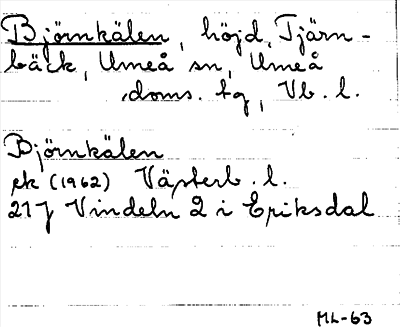 Björnkälen, höjd, Tjärn-
bäck, Umeå sn, Umeå
doms. tg, Vb. l.
Björnkälen
ek (1962) Västerb. l.
21J Vindeln 2 i Eriksdal
ML-63